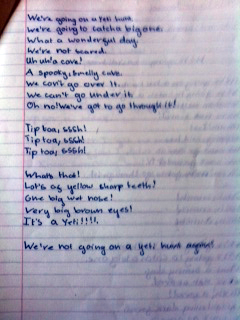 We're going on a Yeti hunt
We're going to catch a big one.
What a wonderful day.
We're not scared.
Uh uh! a cave!
A spooky, smelly cave.
We can't go over it.
We can't go under it.
Oh no! We've got to go through it!
Tip toa, sssh!
Tip toa, sssh!
Tip toa, sssh!
Whats that!
Lot's of yellow sharp teeth!
One big wet nose!
Very big brown eyes!
It's a Yeti!!!!
We're not going on a yeti hunt again!